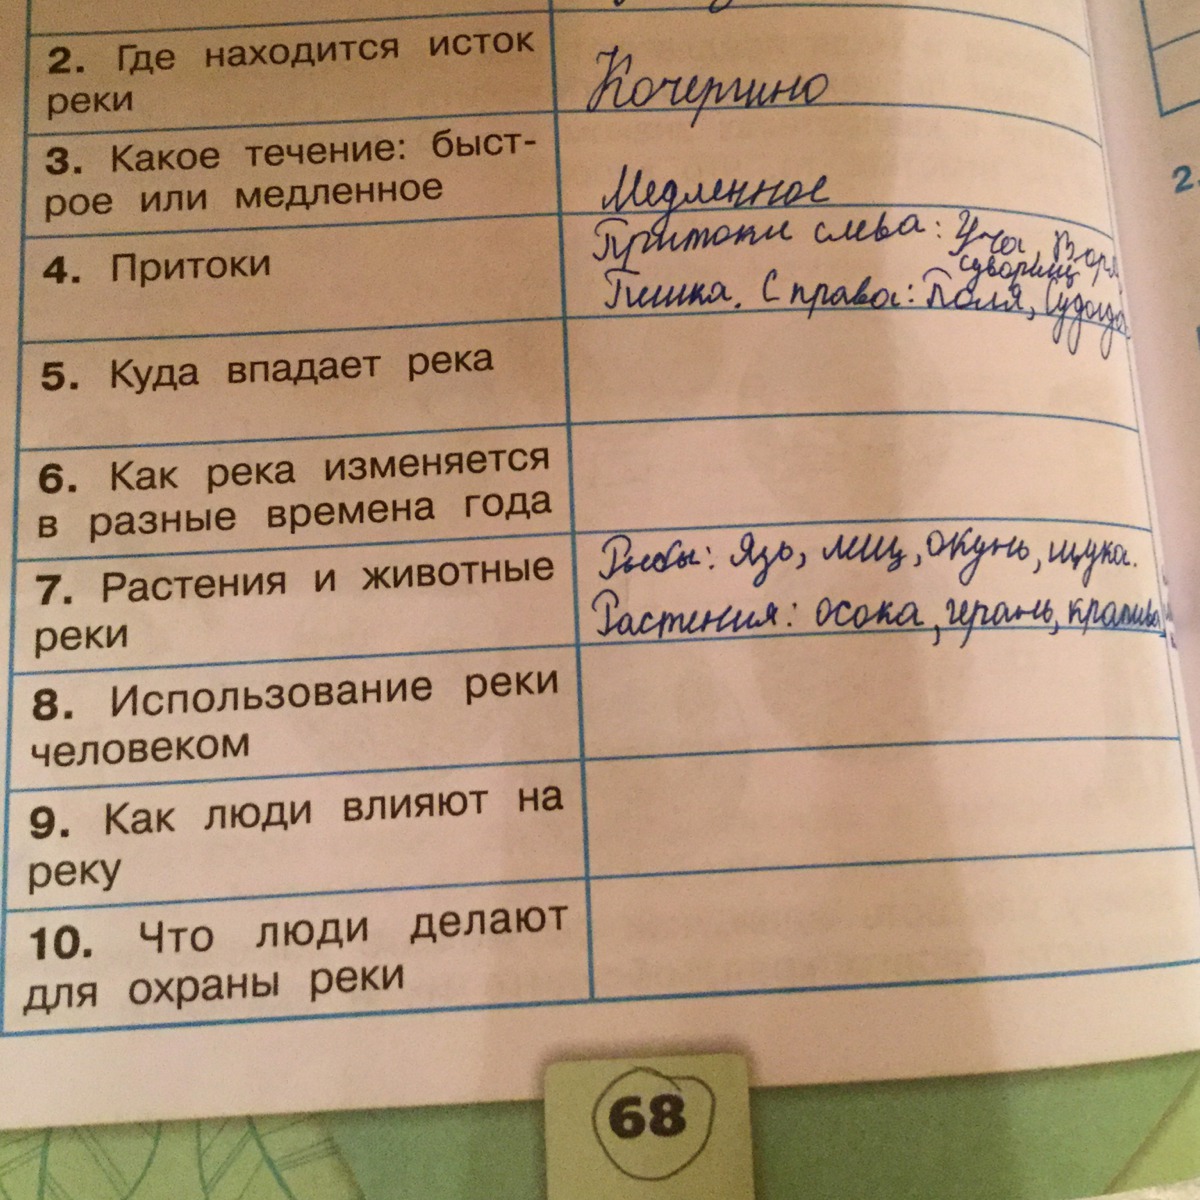 2. Где находится исток
реки
Кочергино
3. Какое течение: быст-
рое или медленное
Медленное
4. Притоки
Притоки слева: Уча, Воря,
Пешка. Справа: Поля, Судогда
суворощ
5. Куда впадает река
6. Как река изменяется
в разные времена года
7. Растения и животные
реки
Рыбы: язь, лещ, окунь, щука.
Растения: осока, герань, крапива
8. Использование реки
человеком
9. Как люди влияют на
реку
10. Что люди делают
для охраны реки
68
2.